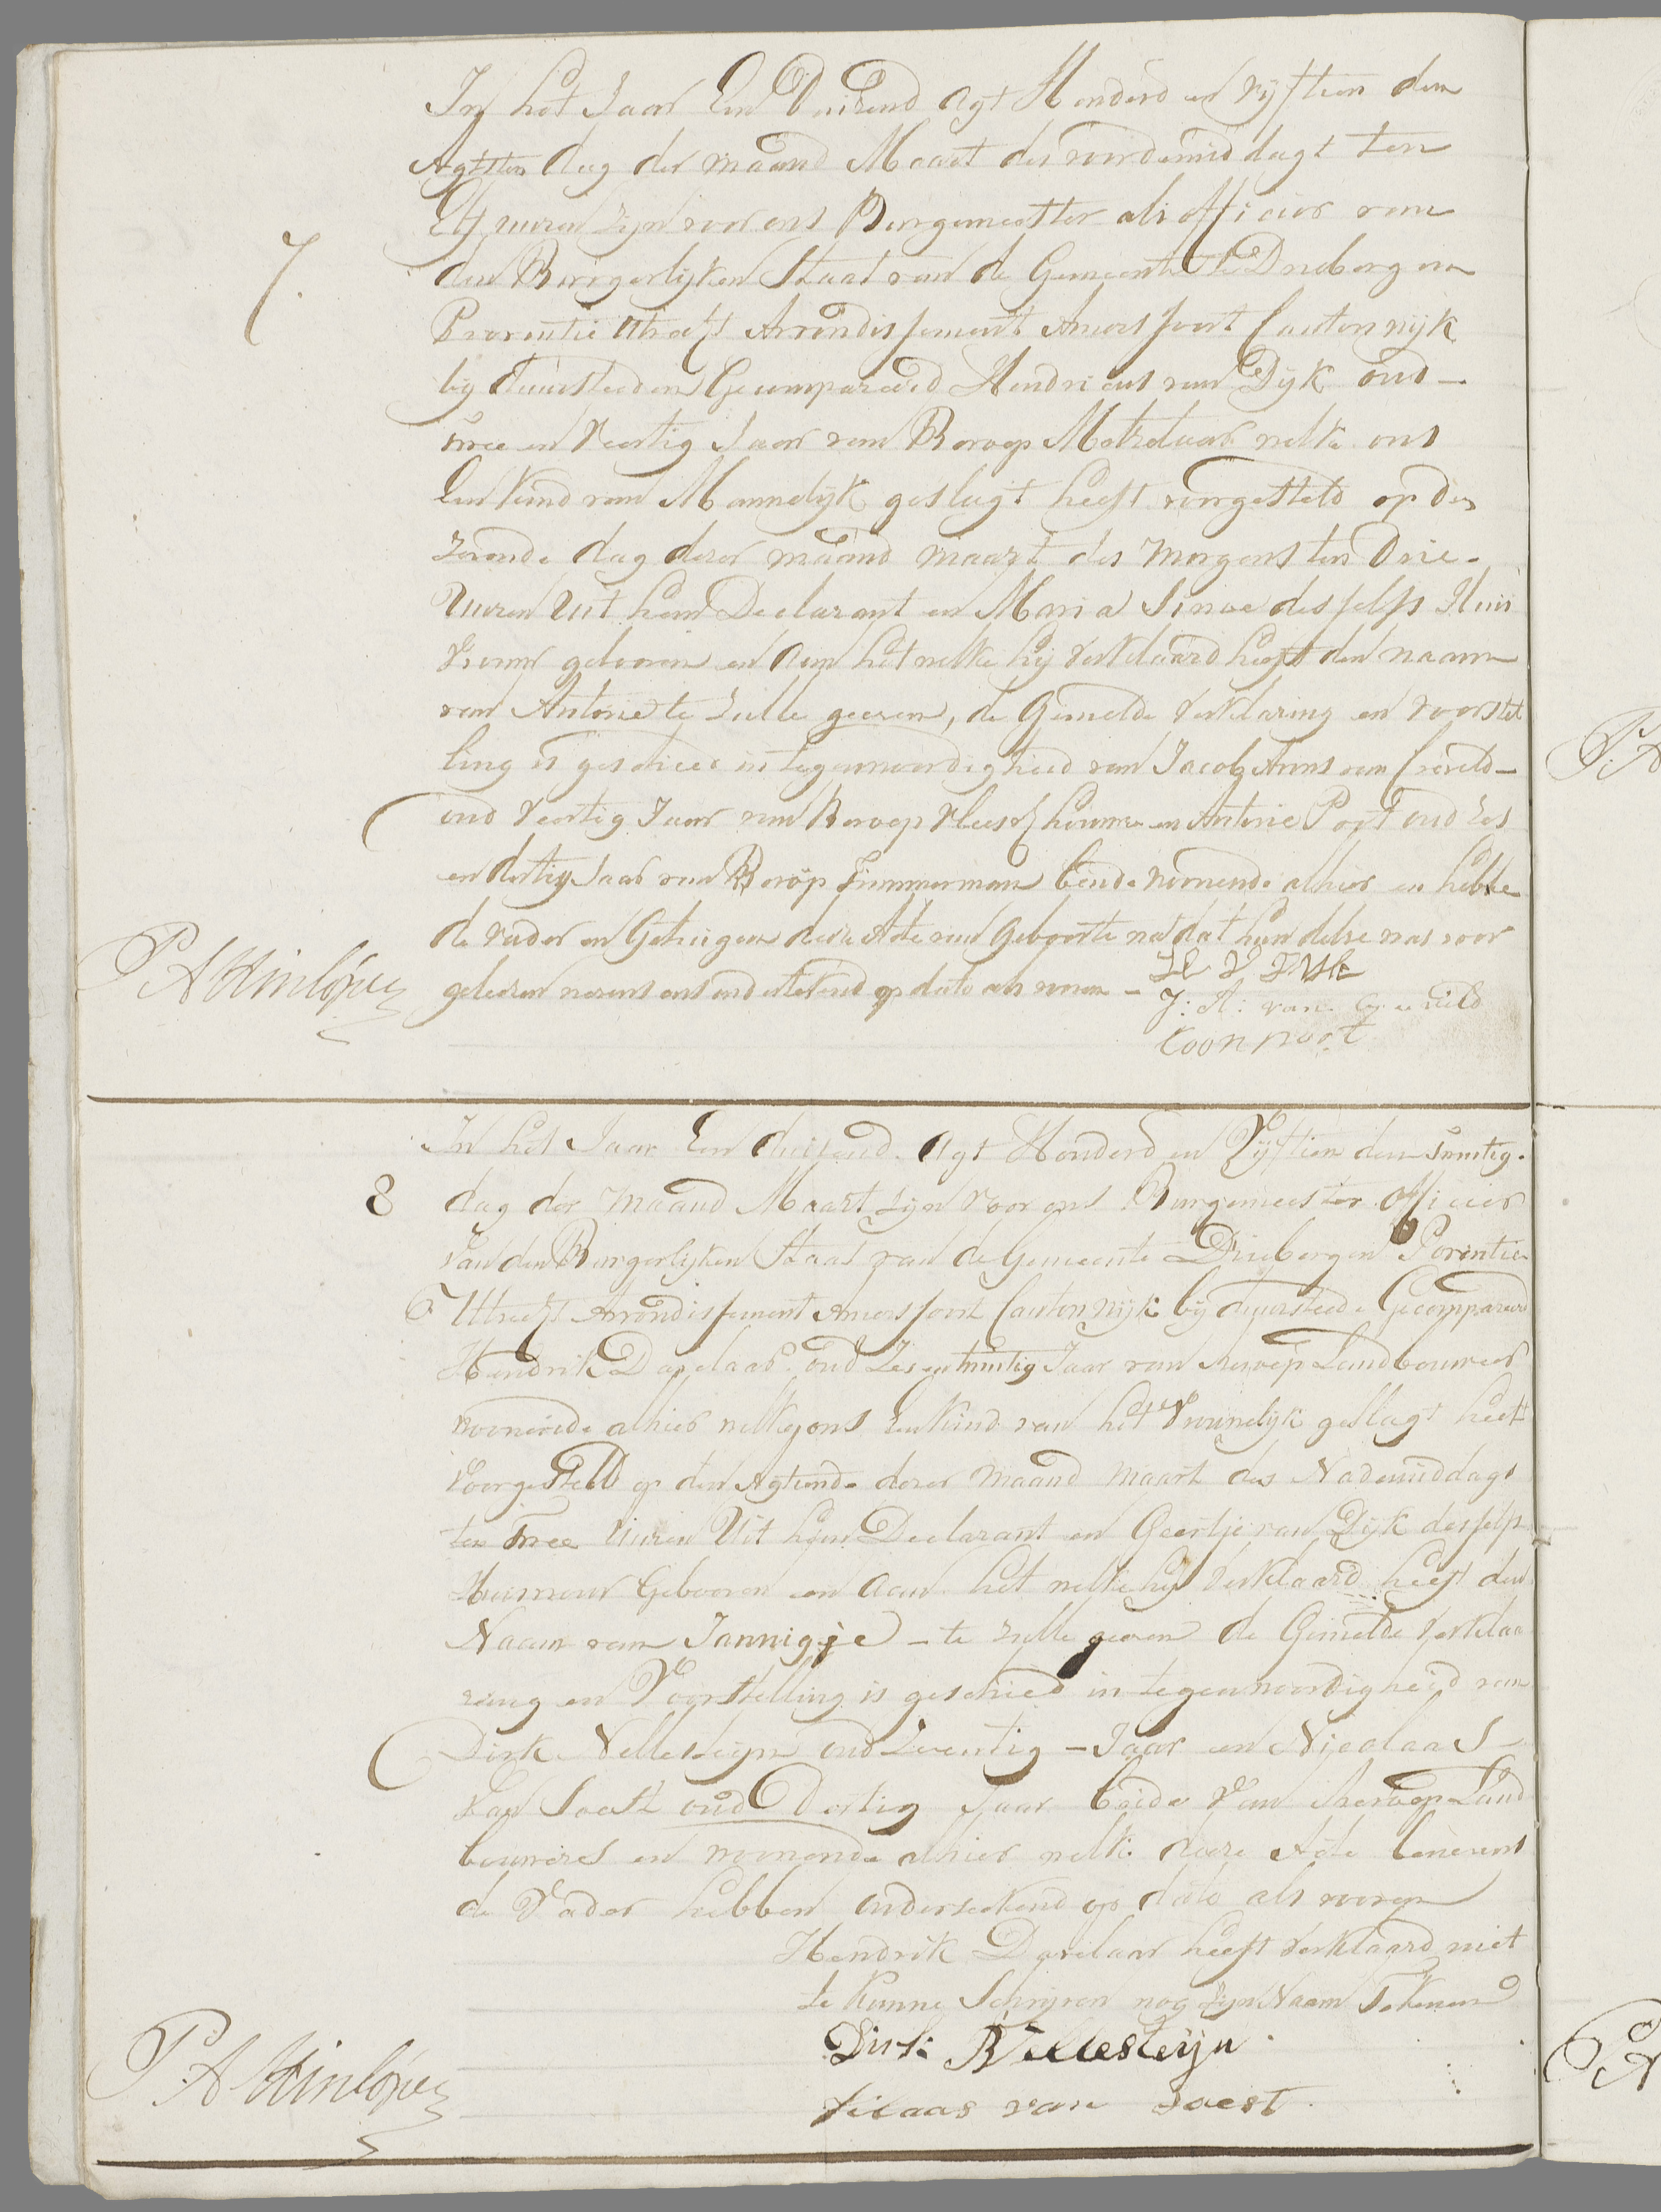 In het Jaar Een Duizend Agt Honderd en Vyftien den
Agtsten dag der maand Maart des voordemiddagt ten
Elf uuren zyn voor ons Burgemeester als officier van
den Burgerlyken Staat van de Gemeente Drieberg en
Provintie Utrecht Arrondissement Amersfoort Canton wyk
7.
by duursteeden Gecompareerd Hendricus van Dyk oud -
twee en Veertig Jaar van Beroep Metzelaar welke ons
Een kind van Mannelyk geslagt heeft voorgesteld op den
zevende dag dezer maand maart des morgens ten Drie -
Uuren Uit hem Declarant en Maria desselfs Huis
Vrouw gebooren en aan het welke hy verklaard heeft den naam
van Antonie te zulle geeven, de Gemelde verklaring en voorstel
ling is geschied in tegenwoordigheid van Jacob Anns van
oud Veertig Jaar van Beroep Vlees houwer en Antonie Poot oud zes
en dertig Jaar van Beroep Timmerman beide woonende alhier en hebbe
de vader en Getuigen deeze Acte van Geboorte nadat hun delve was voor
geleezen nevens ons ondertekend op dato als voren -
H V DYk
J: A: van
toon poot
P A Hinlópen
In het Jaar Een duizend Agt Honderd en Vyftien den twintig
8
dag der maand Maart zyn voor ons Burgemeester officier
van den Burgerlyken Staat van de Gemeente Driebergen Porintie
Utrecht Arrondissement Amersfoort Canton wyk by duursteede Gecompareerd
Hendrik Davelaar oud Zes en twintig Jaar van Beroep Landbouwer
woonende alhier welke ons Een kind van het Vrouwelyk geslagt heeft
voorgesteld op den Agtiende dezer maand maart des Nademiddags
ten Twee Uuren Uit hem Declarant en Geertje van Dyk desselfs
Huisvrouw Gebooren en aan het welke hy verklaard heeft den
Naam van Jannigje - te zulle geeven de Gemelde verklaa
ring en Voorstelling is geschied in tegenwoordigheid van
Dirk Nellesteyn oud Zeventig - Jaar en Nicolaas
van Soest oud Dertig Jaar beide van Beroep Land
bouwers en woonende alhier welke deeze Acte benevens
de Vader hebben ondertekend op dato als voren
Hendrik Davelaar heeft verklaard niet
te kunne Schryven nog zyn Naam Tekenen
Dirk Nellesteyn
van Soest
P A Hinlópen